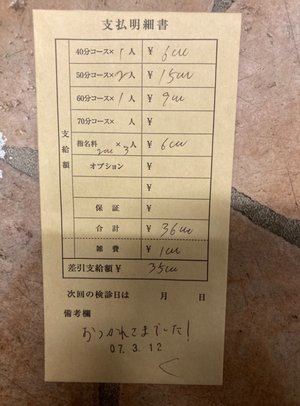 支払明細書
40分コース×1人 ¥ 6000
50分コース×2人 ¥ 15000
60分コース×1人 ¥ 9000
70分コース× 人 ¥
指名料 2000×3人 ¥ 6000
オプション ¥
¥
保証 ¥
合計 ¥ 36000
雑費 ¥ 1000
差引支給額 ¥ 35000
支給額
次回の検診日は 月 日
備考欄
おつかれさまでした!
07.3.12